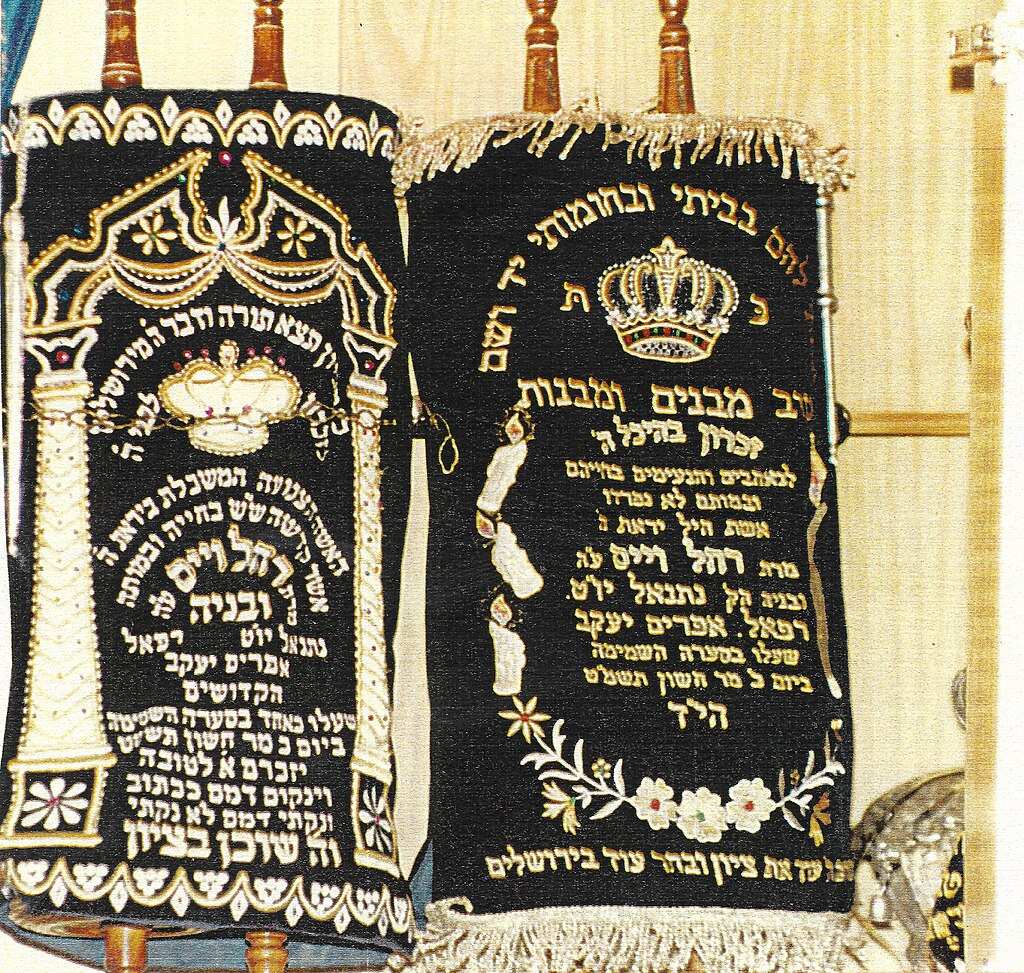 להם בביתי ובחומותי יד ושם
כ ת
טוב מבנים ומבנות
זכרון בהיכל ה'
לנאהבים והנעימים בחייהם
ובמותם לא נפרדו
אשת חיל יראת ה'
מרת רחל וייס ע"ה
ובניה הק' נתנאל יו"ט
רפאל. אפרים יעקב
שעלו בסערה השמימה
ביום כ' מר חשון תשמ"ט
הי"ד
את ציון ובחר עוד בירושלים
תצא תורה ודבר ה' מירושלים
האשה הצנועה המשכלת ביראת ה'
אשר קדשה שש בחייה ובמותה
מרת רחל וייס ע"ה
ובניה
נתנאל יו"ט רפאל
אפרים יעקב
הקדושים
שעלו כאחד בסערה השמימה
ביום כ' מר חשון תשמ"ט
יזכרם א' לטובה
וינקום דמם ככתוב
ונקתי דמם לא נקתי
וה' שוכן בציון